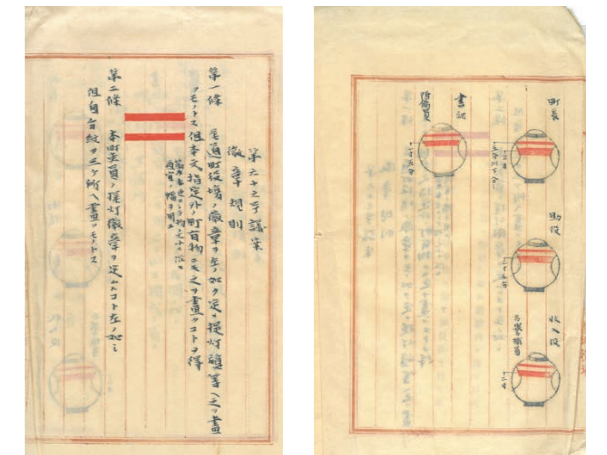 第六十三号議案
徽章規則
第一條 尾道町役場ノ徽章ヲ左ノ如ク定メ提灯等ヘ之ヲ畫
クモノトス但本文指定外ノ町有物ニモ之ヲ畫クコトヲ得
第二條 本町吏員ノ提灯徽章ヲ定ムルコト左ノ如シ
但自分紋ヲ三ヶ所ヘ畫クモノトス
町長
助役
收入役
書記
附属員